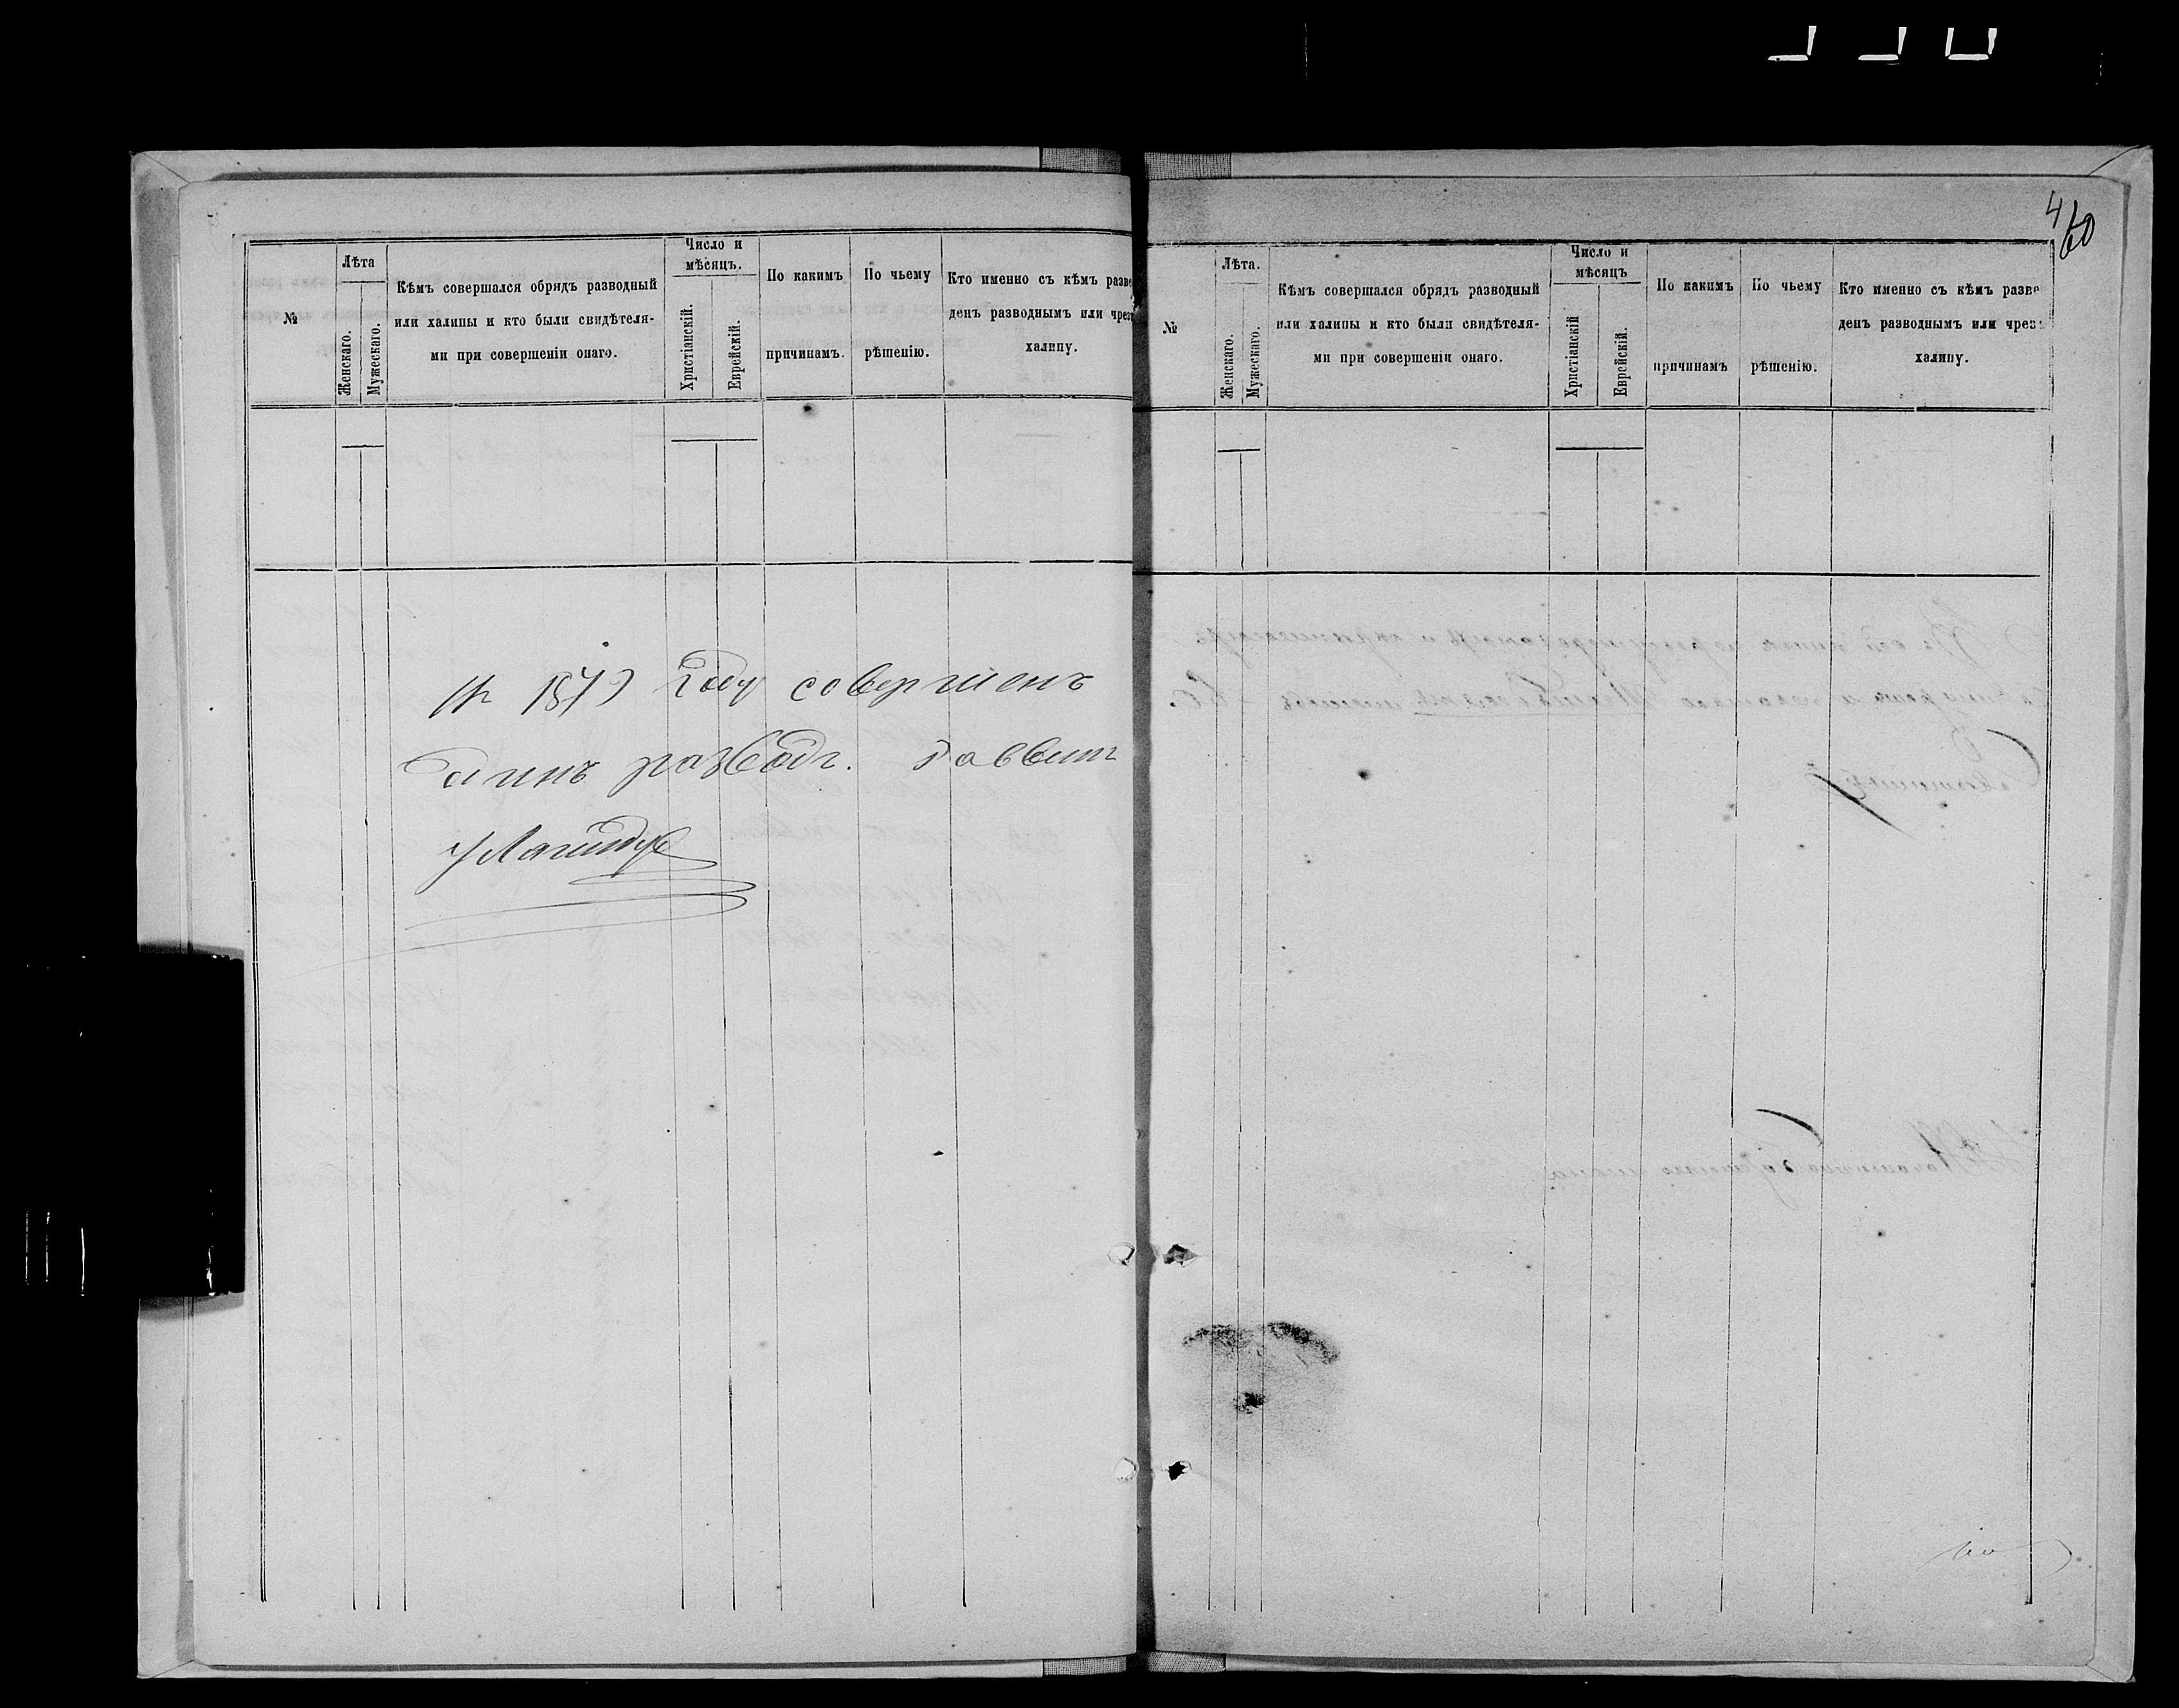 №
Лѣта
Женскаго.
Мужескаго.
Кѣмъ совершался обрядъ разводный
или халицы и кто были свидѣтеля-
ми при совершеніи онаго.
Число и
мѣсяцъ.
Христіанскій.
Еврейскій.
По какимъ
причинамъ.
По чьему
рѣшенію.
Кто именно съ кѣмъ разве
денъ разводнымъ или чрезъ
халицу.
году совершенъ
одинъ разводъ. раввинъ
4
60
№
Лѣта.
Женскаго.
Мужескаго.
Кѣмъ совершался обрядъ разводный
или халицы и кто были свидѣтеля-
ми при совершеніи онаго.
Число и
мѣсяцъ
Христіанскій
Еврейскій.
По какимъ
причинамъ
По чьему
рѣшенію.
Кто именно съ кѣмъ разве
денъ разводнымъ или чрез
халицу.